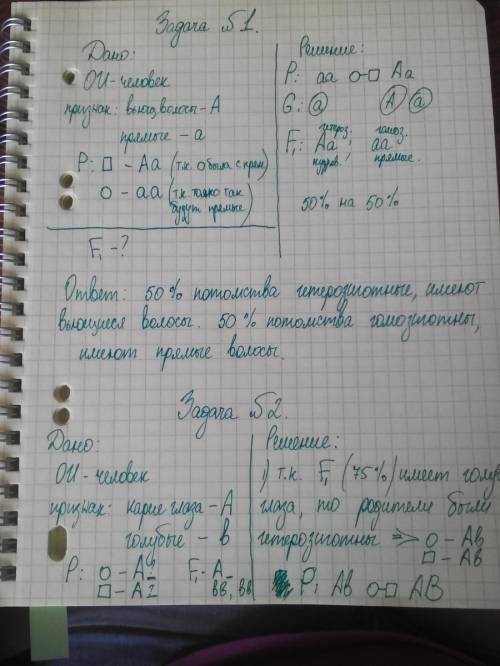 Задача №1.
Дано:
ОИ - человек
признак: вьющ. волосы - A
прямые - a
P: □ - Aa (т.к. о была с прям.)
○ - aa (т.к. только так будут прямые)
F₁ - ?
Решение:
P: aa ○-□ Aa
G: (a) (A) (a)
гетероз. гомоз.
F₁: Aa aa
кудряв. прямые.
50% на 50%
Ответ: 50% потомства гетерозиготные, имеют
вьющиеся волосы. 50% потомства гомозиготны,
имеют прямые волосы.
Задача №2.
Дано:
ОИ - человек
признак: карие глаза - A
голубые - в
P: ○ - A
□ - A
F₁ - A_
вв, вв
Решение:
1) т.к. F₁ (75%) имеет голу
глаза, то родители были
гетерозиготны => ○ - Aв
□ - Aв
P₁ Aв ○-□ AB